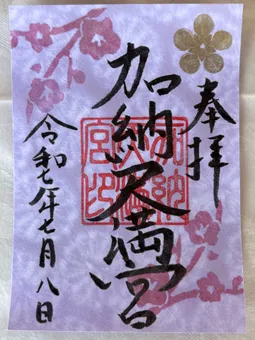 奉拝
加納天満宮
加納天満宮印
令和七年七月八日